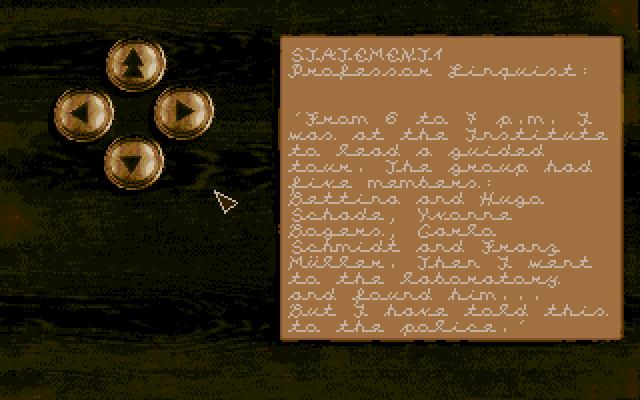 STATEMENT1
Professor Linquist:
´From 6 to 7 p.m. I
was at the Institute
to lead a guided
tour. The group had
five members:
Bettina and Hugo
Schade, Yvonne
Bogers, Carla
Schmidt and Franz
Müller. Then I went
to the laboratory
and found him...
But I have told this
to the police.´